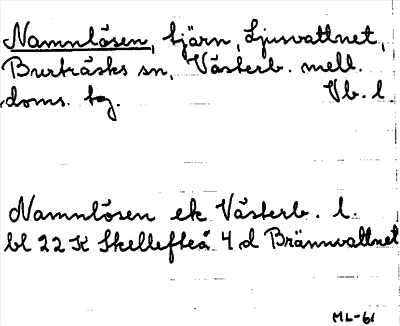 Namnlösen, tjärn, Ljusvattnet,
Burträsks sn, Västerb. mell.
doms. tg. Vb. l.
Namnlösen ek Västerb. l.
bl 22 K Skellefteå 4 d Brännvattnet
ML-61